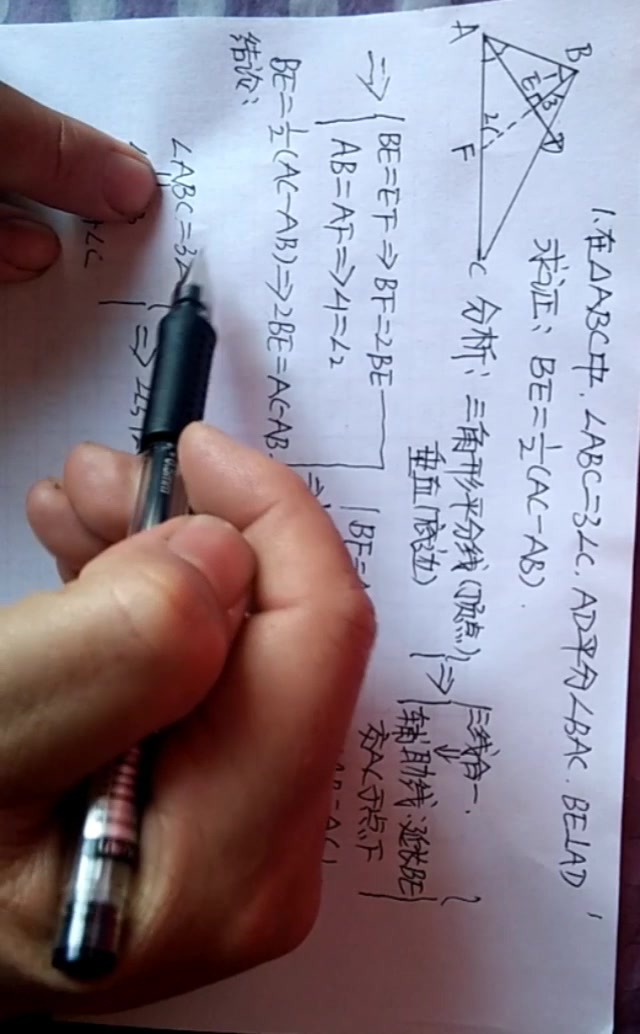 1.在△ABC中,∠ABC=3∠C,AD平分∠BAC,BE⊥AD,
求证:BE=½(AC-AB).
B
A
C
D
E
F
1
3
2
分析:三角形平分线(顶点)
垂直(底边)
⇒
三线合一.
辅助线:延长BE
交AC于点F
⇒
BE=EF⇒BF=2BE
AB=AF⇒∠1=∠2
BF=
结论:
BE=½(AC-AB)⇒2BE=AC-AB.
⇒
∠ABC=3∠
+∠C
⇒